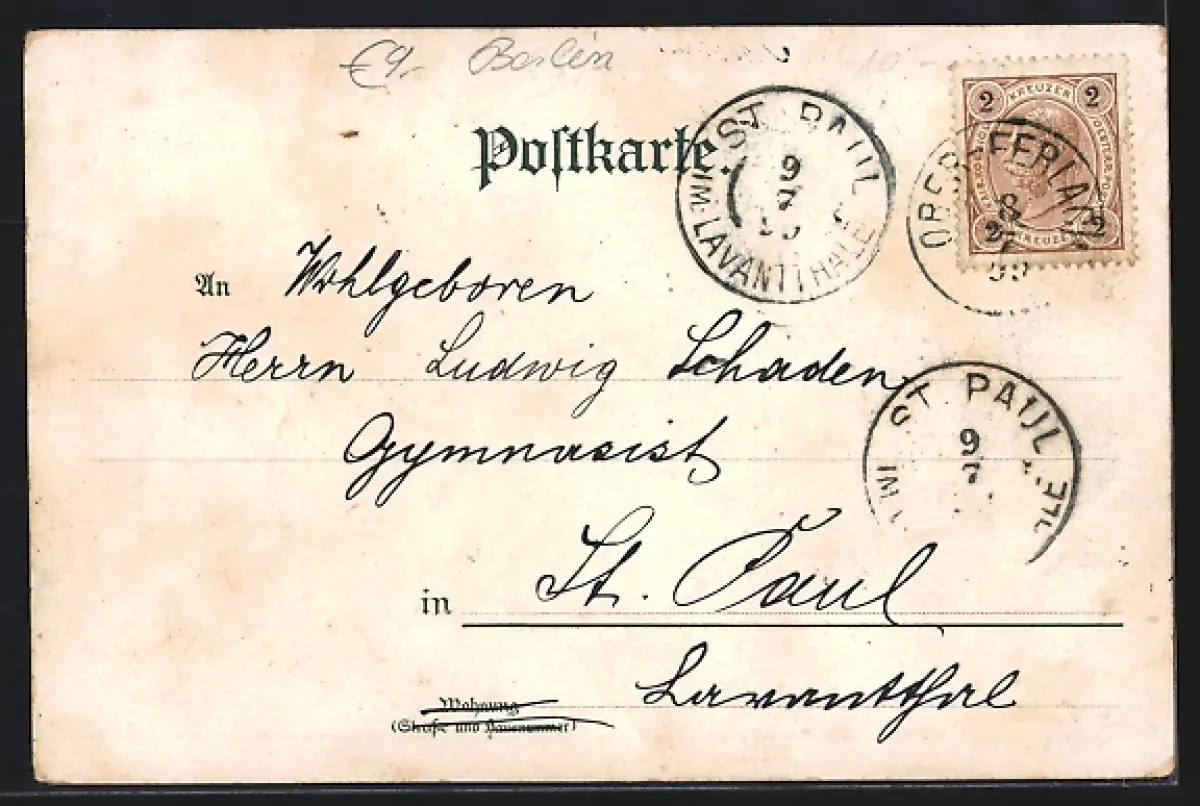 €9,- Berlin 10-
Postkarte.
ST. PAUL
IM LAVANTTHALE
9
7
99
2 KREUZER 2
2 KREUZER 2
OBER-FERLACH
8
99
An Wohlgeboren
Herrn Ludwig Schaden
Gymnasist
ST. PAUL
IM
9
7
in St. Paul
Lavantthal
Wohnung
(Straße und Hausnummer)